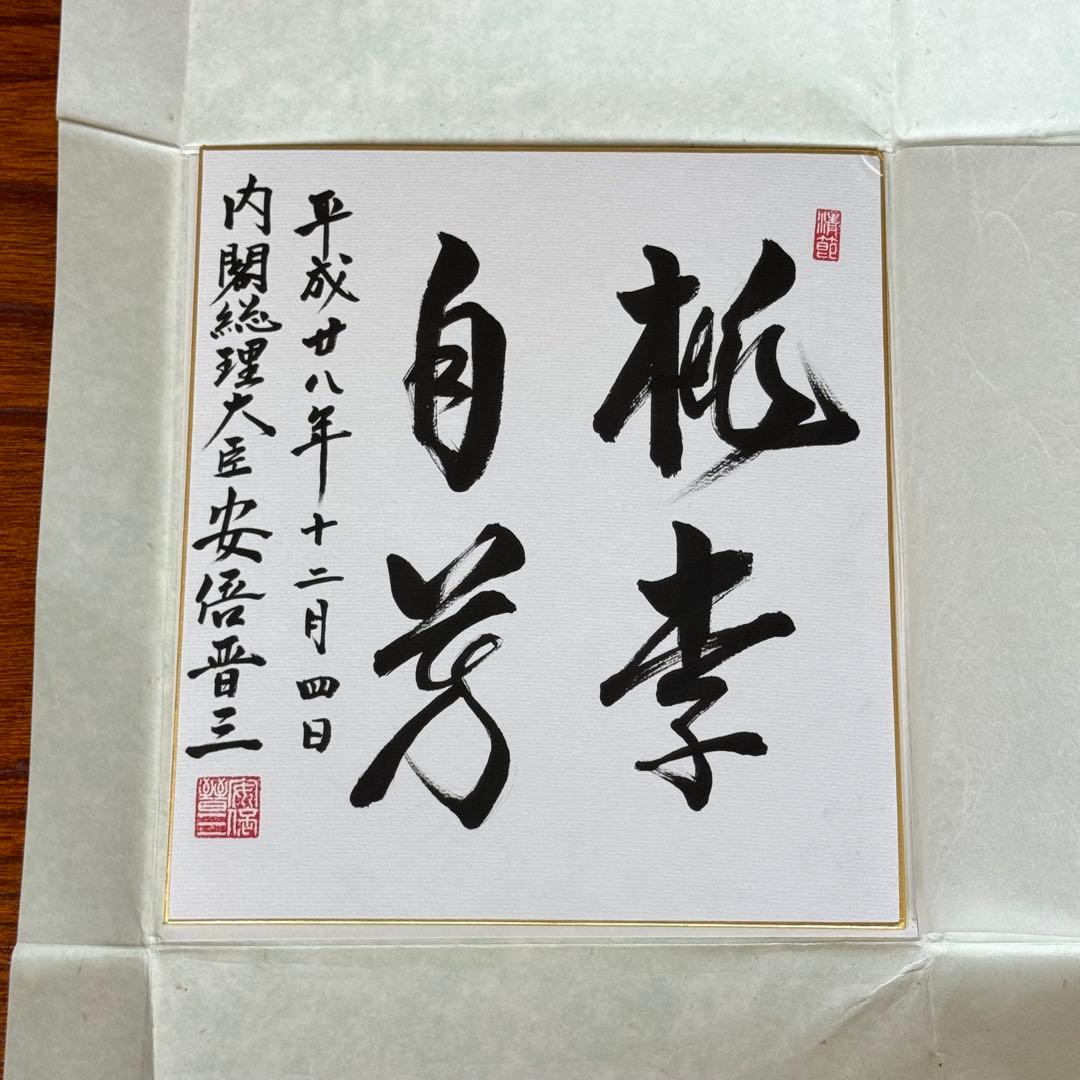 清節
桃李
自芳
平成廿八年十二月四日
内閣総理大臣安倍晋三
安倍晋三